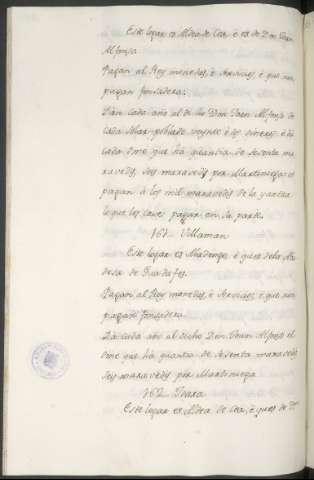 Este logar es Aldea de Cea, è es de Don Juan
Alfonso
Pagan al Rey monedas, è servicios, è que non
pagan fonsadera.
Dan cada año al dicho Don Juan Alfonso de
cada Solar poblado veynte è
cada ome que ha quantia de sesenta ma
ravedis, seis maravedis por Martiniega: et
pagan à los mil maravedis de la yantar
lo que les cave pagar en su parte.
161. Villaman
Este logar es Abadengo, è que es dela Aba
desa de
Pagan al Rey monedas, è servicios, è que non
pagan fonsadera.
Dà cada año al dicho Don Juan Alfonso el
ome que ha quantia de sesenta maravedis
seis maravedis por Martiniega
162.
Este logar es Aldea de Cea, è que es de Dn